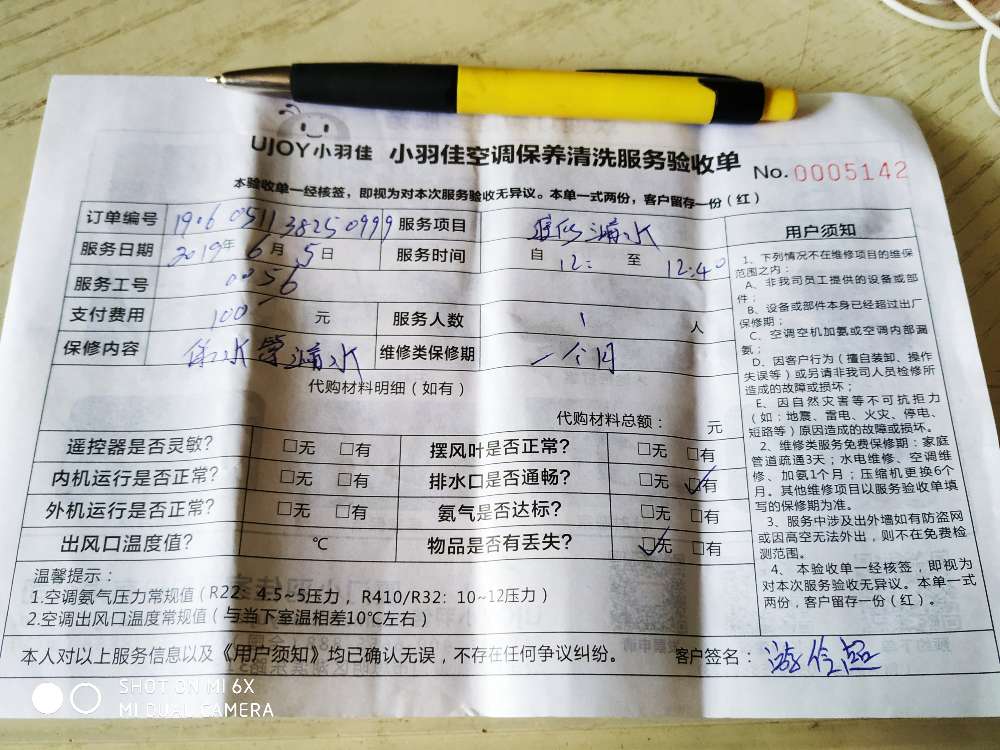 UJOY小羽佳 小羽佳空调保养清洗服务验收单 No. 0005142
本验收单一经核签，即视为对本次服务验收无异议。本单一式两份，客户留存一份（红）
订单编号 1906 0511 3825 0999 服务项目 维修漏水
服务日期 2019年6月5日 服务时间 自 12: 至 12:40
服务工号 0056
支付费用 100 元 服务人数 1 人
保修内容 水管漏水 维修类保修期 一个月
代购材料明细（如有）
代购材料总额： 元
遥控器是否灵敏? □无 □有 摆风叶是否正常? □无 □有
内机运行是否正常? □无 □有 排水口是否通畅? □无 ☑有
外机运行是否正常? □无 □有 氨气是否达标? □无 □有
出风口温度值? ℃ 物品是否有丢失? ☑无 □有
温馨提示：
1.空调氨气压力常规值（R22：4.5~5压力，R410/R32：10~12压力）
2.空调出风口温度常规值（与当下室温相差10℃左右）
本人对以上服务信息以及《用户须知》均已确认无误，不存在任何争议纠纷。 客户签名：
用户须知
1、下列情况不在维修项目的维保
范围之内：
A、非我司员工提供的设备或部
件；
B、设备或部件本身已经超过出厂
保修期；
C、空调空机加氨或空调内部漏
氨；
D、因客户行为（擅自装卸、操作
失误等）或另请非我司人员检修所
造成的故障或损坏；
E、因自然灾害等不可抗拒力
（如：地震、雷电、火灾、停电、
短路等）原因造成的故障或损坏。
2、维修类服务免费保修期：家庭
管道疏通3天；水电维修、空调维
修、加氨1个月；压缩机更换6个
月。其他维修项目以服务验收单填
写的保修期为准。
3、服务中涉及出外墙如有防盗网
或因高空无法外出，则不在免费检
测范围。
4、本验收单一经核签，即视为
对本次服务验收无异议。本单一式
两份，客户留存一份（红）。
SHOT ON MI 6X
MI DUAL CAMERA